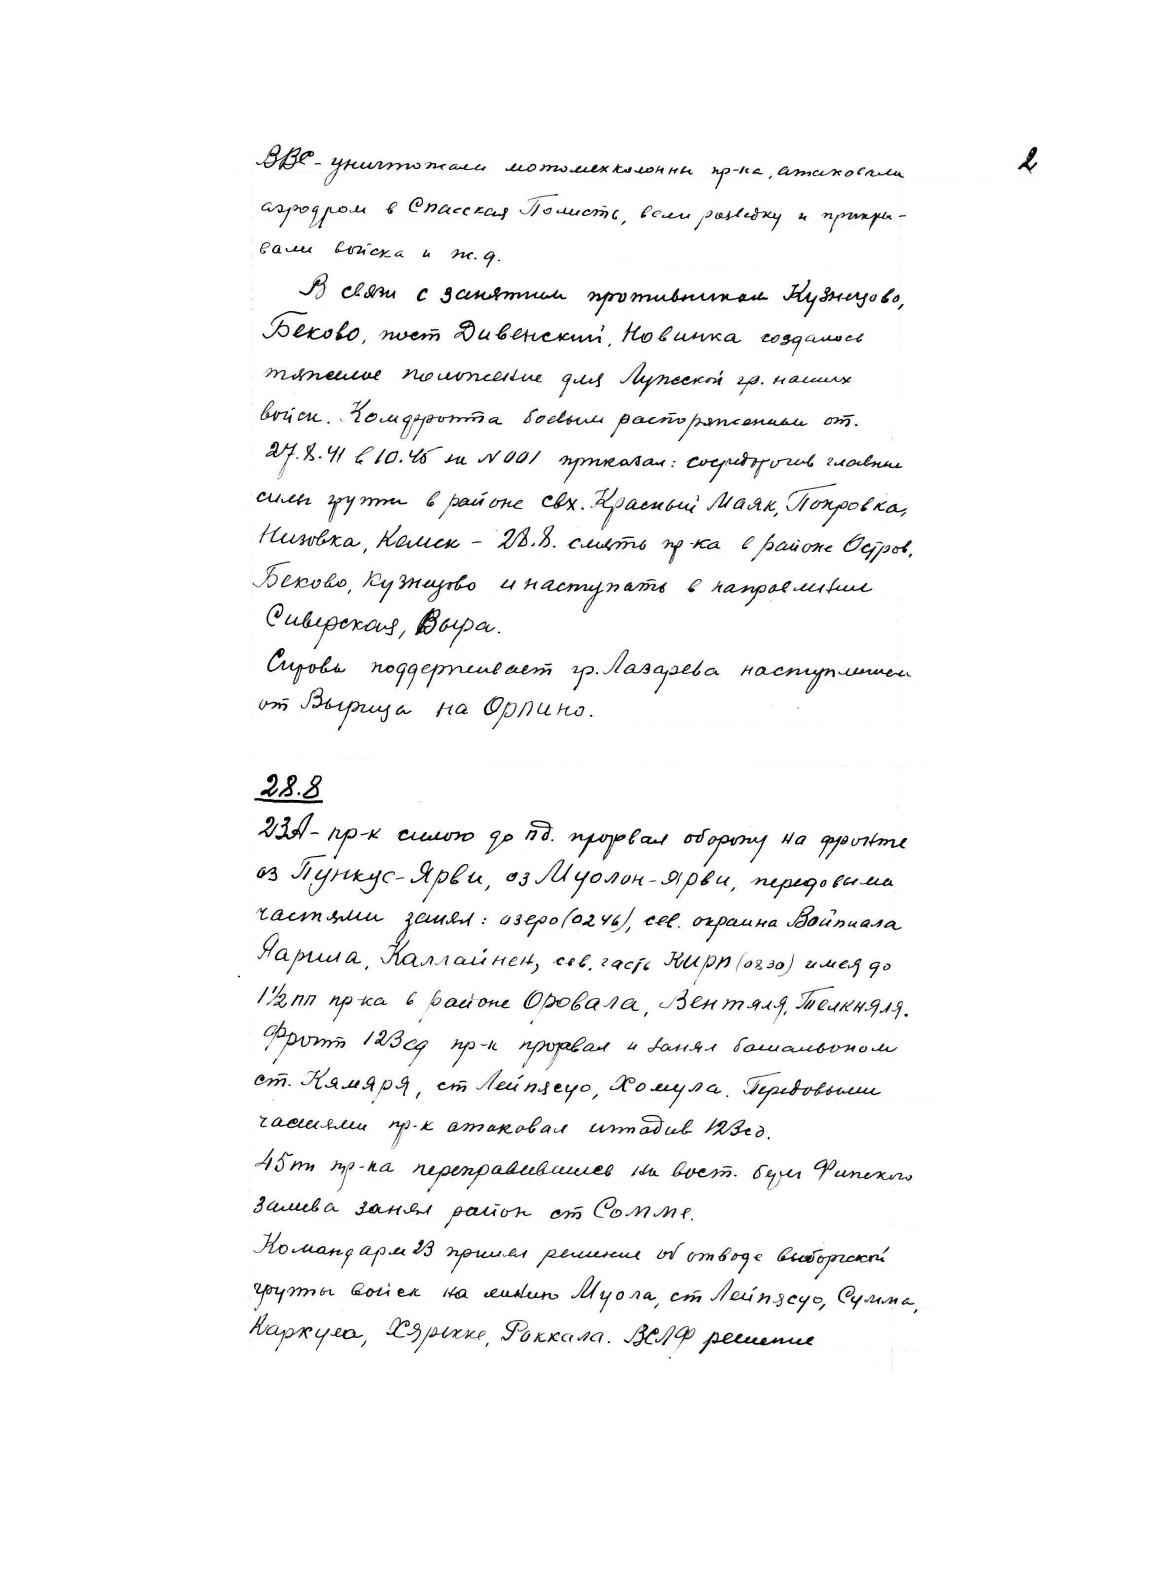 2
ВВС - уничтожали мотомехколонны пр-ка, атаковали
аэродром в Спасская Полисть, вели разведку и прикры-
вали войска и ж.д.
В связи с занятием противником Кузнецово,
Беково, пост Дивенский, Новинка создалось
тяжелое положение для Лужской гр. наших
войск. Комфронта боевым распоряжением от.
27.8.41 в 10.45 за №001 приказал: сосредоточив главные
силы группы в районе свх. Красный Маяк, Покровка,
Низовка, Кемск - 28.8. смять пр-ка в районе Остров,
Беково, Кузнецово и наступать в направлении
Сиверская, Выра.
поддерживает гр. Лазарева наступлением
от Вырица на
28.8
23А - пр-к силою до пд. прорвал оборону на фронте
оз Пункус-Ярви, оз Муолон-ярви, передовыми
частями занял: озеро (0246), сев. окраина Войпиала
Каллайнен, сев. часть Кирп (0830) имея до
1½ пп пр-ка в районе Оровала, Вентяля, Телкняля.
Фронт 123сд пр-к прорвал и занял батальоном
ст. Кямяря, ст Лейпясуо, Хомула. Передовыми
частями пр-к атаковал штадив 123сд.
45пп пр-ка переправившись на вост. берег Финского
залива занял район ст Сомме.
Командарм 23 принял решение об отводе выборгской
группы войск на линию Муола, ст Лейпясуо, Сумма,
Роккала. ВСЛФ решение